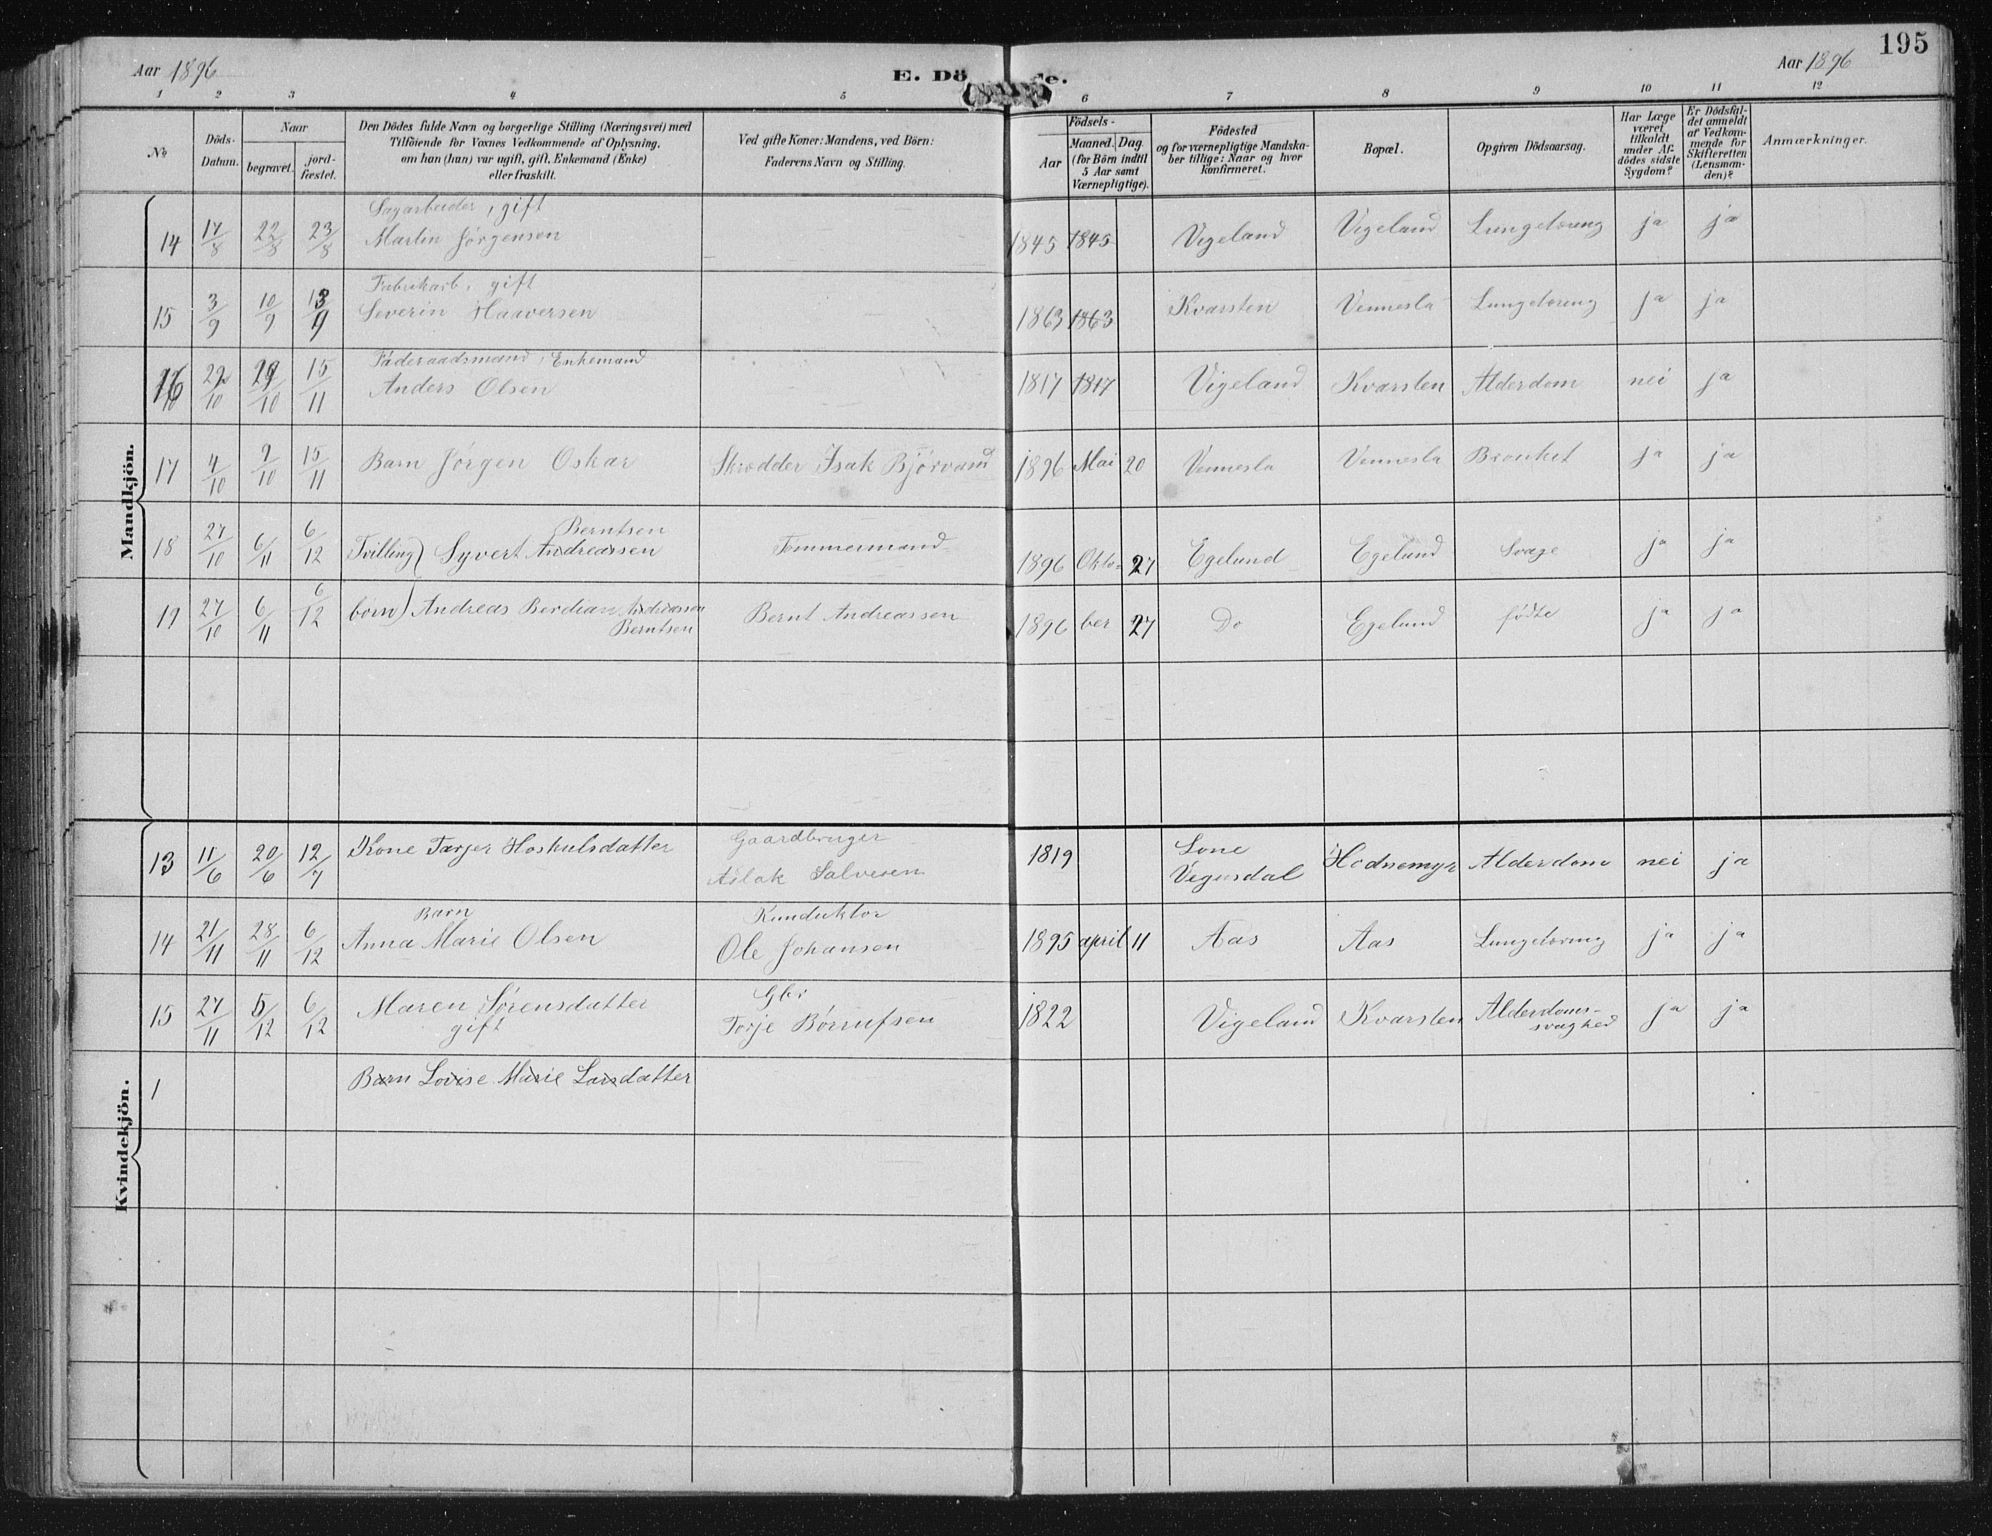 195
Aar 1896
E. Dö de.
Aar 1896
1 2 3 4 5 6 7 8 9 10 11 12
No
Döds-
Datum.
Naar
begravet.
jord-
fæstet.
Den Dödes fulde Navn og borgerlige Stilling (Næringsvei) med
Tilföiende for Voxnes Vedkommende af Oplysning,
om han (hun) var ugift, gift, Enkemand (Enke)
eller fraskilt.
Ved gifte Koner: Mandens, ved Börn:
Faderens Navn og Stilling.
Födsels-
Aar
Maaned. Dag.
(for Börn indtil
5 Aar samt
Værnepligtige).
Födested
og for værnepligtige Mandska-
ber tillige: Naar og hvor
konfirmeret.
Bopæl.
Opgiven Dödsaarsag.
Har Læge
været
tilkaldt
under Af-
dödes sidste
Sygdom?
Er Dödsfal-
det anmeldt
af Vedkom-
mende for
Skifteretten
(Lensman-
den)?
Anmærkninger.
Mandkjön.
Sagarbeider, gift
14 17/8 22/8 23/8 Martin Jørgensen 1845 1845 Vigeland Vigeland Lungetæring ja ja
Fabrikarb., gift
15 3/9 10/9 13/9 Severin Haaversen 1863 1863 Kvarsten Vennesla Lungetæring ja ja
Føderaadsmand, Enkemand
16 /10 29/10 15/11 Anders Olsen 1817 1817 Vigeland Kvarsten Alderdom nei ja
17 4/10 9/10 15/11 Barn Jørgen Oskar Skrædder Isak Bjørvand 1896 Mai 20 Vennesla Vennesla Bronkit ja ja
Berntsen
18 27/10 6/11 6/12 Tvilling) Syvert Andreassen Tømmermand 1896 Okto- 27 Egelund Egelund Svage ja ja
19 27/10 6/11 6/12 børn) Andreas Berdian Andreassen Bernt Andreassen 1896 ber 27 Do Egelund fødte ja ja
Berntsen
Kvindekjön.
Gaardbruger
13 11/6 20/6 12/7 Kone Tarjer Hoskulsdatter Aslak Salvesen 1819 Lone
Vegusdal Hodnemyr Alderdom nei ja
Barn Konduktør
14 21/11 28/11 6/12 Anna Marie Olsen Ole Johansen 1895 april 11 Aas Aas Lungetæring ja ja
Gbr
15 27/11 5/12 6/12 Maren Sørensdatter Torje 1822 Vigeland Kvarsten Alderdoms- ja ja
gift svaghed
1 Barn Lovise Marie Larsdatter